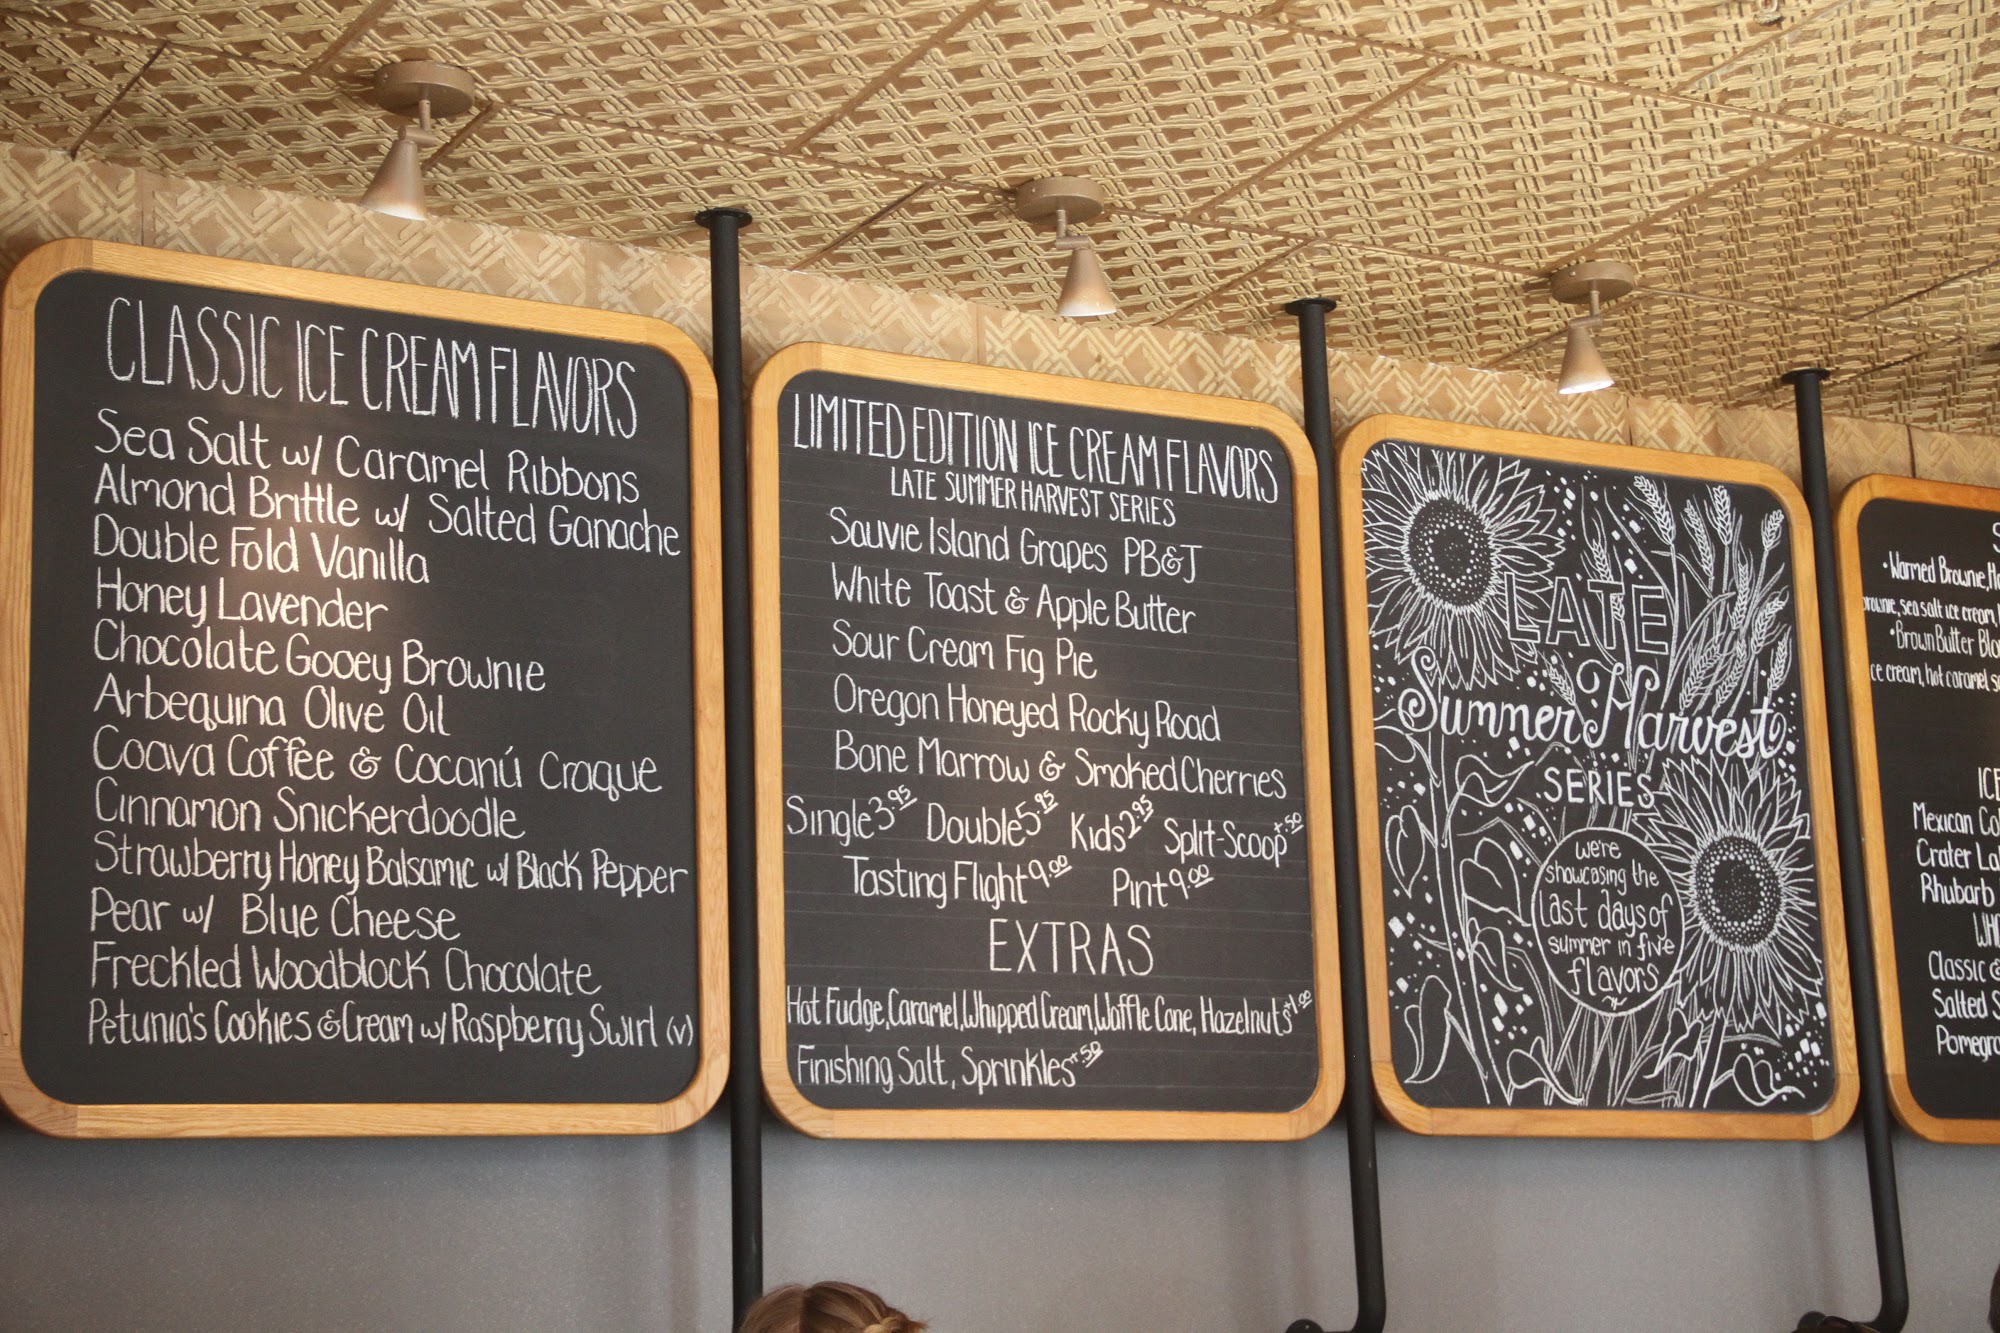 CLASSIC ICE CREAM FLAVORS
Sea Salt w/ Caramel Ribbons
Almond Brittle w/ Salted Ganache
Double Fold Vanilla
Honey Lavender
Chocolate Gooey Brownie
Arbequina Olive Oil
Coava Coffee & Cocanú Craque
Cinnamon Snickerdoodle
Strawberry Honey Balsamic w/ Black Pepper
Pear w/ Blue Cheese
Freckled Woodblock Chocolate
Petunia's Cookies & Cream w/ Raspberry Swirl (v)
LIMITED EDITION ICE CREAM FLAVORS
LATE SUMMER HARVEST SERIES
Sauvie Island Grapes PB&J
White Toast & Apple Butter
Sour Cream Fig Pie
Oregon Honeyed Rocky Road
Bone Marrow & Smoked Cherries
Single 3.95 Double 5.95 Kids 2.95 Split-Scoop +.50
Tasting Flight 9.00 Pint 9.00
EXTRAS
Hot Fudge, Caramel, Whipped Cream, Waffle Cone, Hazelnuts +1.00
Finishing Salt, Sprinkles +.50
LATE
Summer Harvest
SERIES
we're
showcasing the
last days of
summer in five
flavors
S
• Warmed Brownie, Ho
brownie, sea salt ice cream,
• Brown Butter Blo
ce cream, hot caramel s
ICE
Mexican Co
Crater La
Rhubarb
WH
Classic &
Salted S
Pomegra